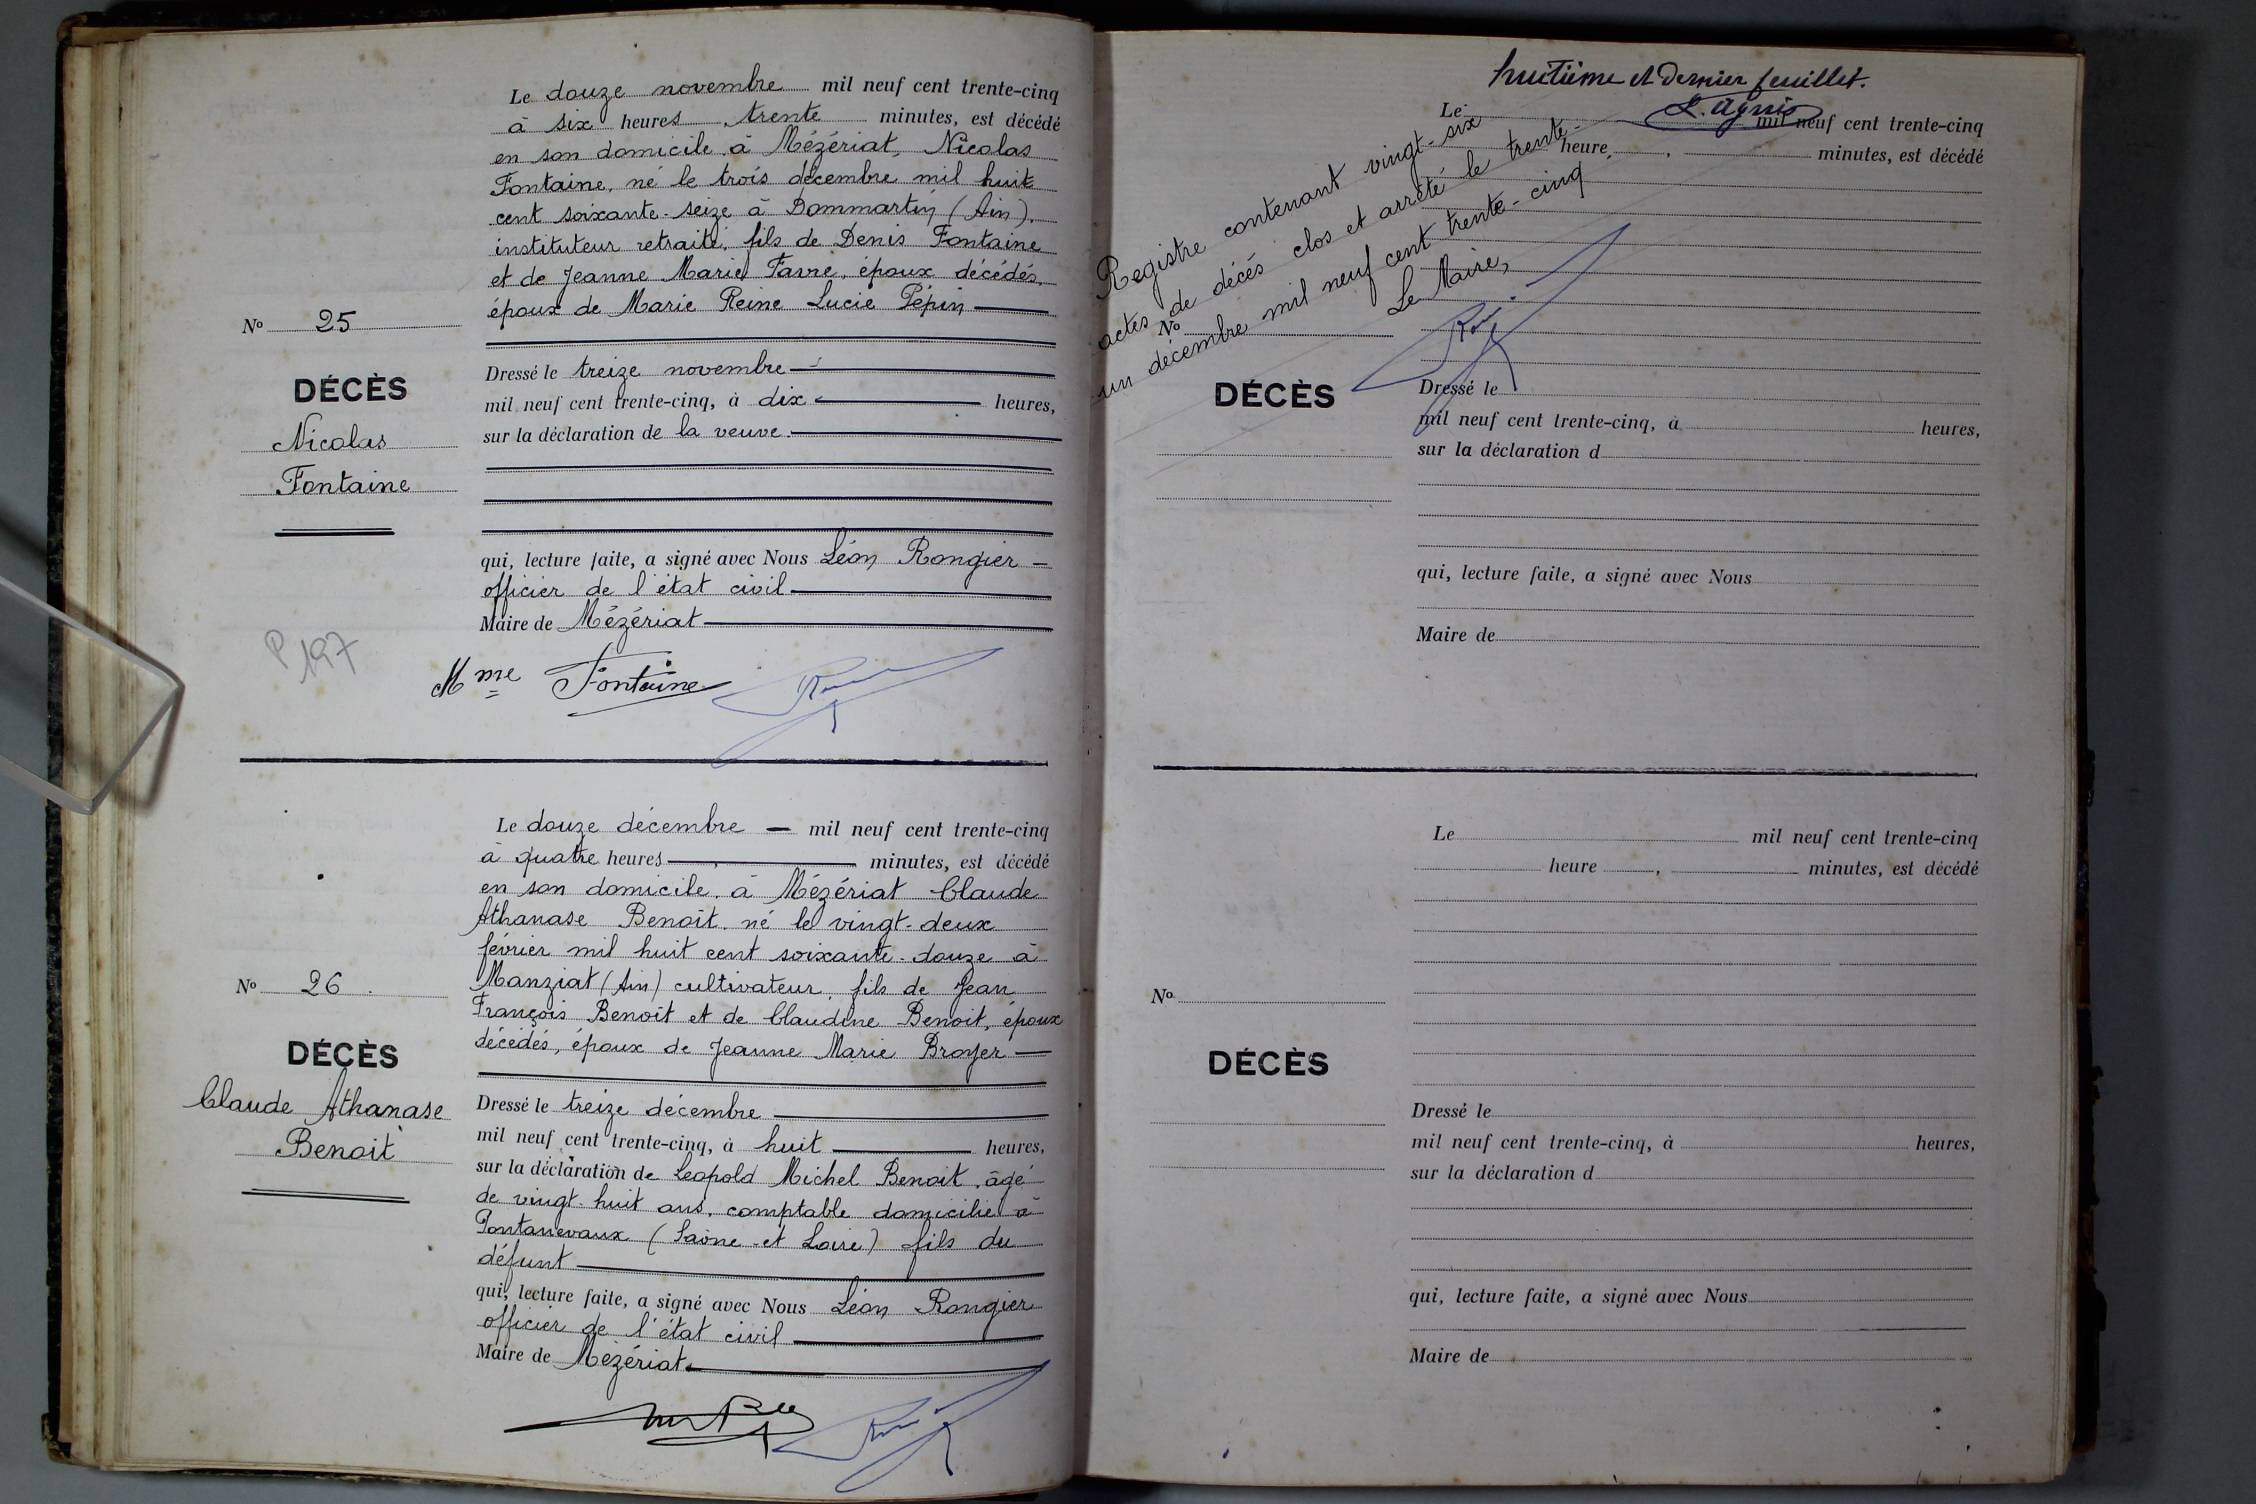 Le douze novembre mil neuf cent trente-cinq
à six heures trente minutes, est décédé
en son domicile à Mézériat, Nicolas
Fontaine, né le trois décembre mil huit
cent soixante-seize à Dommartin (Ain),
instituteur retraité, fils de Denis Fontaine
et de Jeanne Marie Favre, époux décédés,
époux de Marie Reine Lucie Pépin
No 25
DÉCÈS
Nicolas
Fontaine
Dressé le treize novembre
mil neuf cent trente-cinq, à dix heures,
sur la déclaration de la veuve.
qui, lecture faite, a signé avec Nous Léon Rongier
officier de l'état civil
Maire de Mézériat
P 197
Mme Fontaine
Le douze décembre mil neuf cent trente-cinq
à quatre heures minutes, est décédé
en son domicile, à Mézériat Claude
Athanase Benoit, né le vingt-deux
février mil huit cent soixante-douze à
Manziat (Ain) cultivateur, fils de Jean
François Benoit et de Claudine Benoit, époux
décédés, époux de Jeanne Marie Broyer
No 26
DÉCÈS
Claude Athanase
Benoit
Dressé le treize décembre
mil neuf cent trente-cinq, à huit heures,
sur la déclaration de Léopold Michel Benoit, âgé
de vingt-huit ans, comptable domicilié à
Pontanevaux (Saône-et Loire) fils du
défunt
qui, lecture faite, a signé avec Nous Léon Rongier
officier de l'état civil
Maire de Mézériat
huitième et dernier feuillet.
Le mil neuf cent trente-cinq
heure, minutes, est décédé
Registre contenant vingt-six
actes de décés clos et arrêté le trente-
un décembre mil neuf cent trente-cinq
Le Maire,
No
DÉCÈS
Dressé le
mil neuf cent trente-cinq, à heures,
sur la déclaration d
qui, lecture faite, a signé avec Nous
Maire de
Le mil neuf cent trente-cinq
heure , minutes, est décédé
No
DÉCÈS
Dressé le
mil neuf cent trente-cinq, à heures,
sur la déclaration d
qui, lecture faite, a signé avec Nous
Maire de